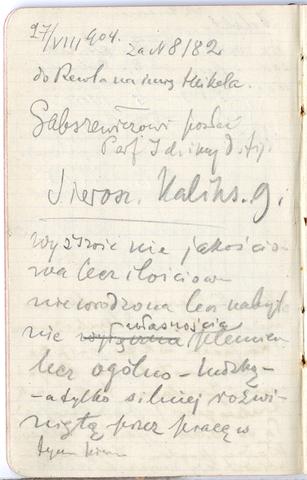 27/VIII 904.
za N 8/82
do Rewla na imię Mikela.
Gabszewiczowi posłać
Perf I d
Sierosz. Kaliks. 9.
wyższość nie jakościo-
wa lecz ilościowa
niewrodzona lecz nabyta
nie własnością
plemien
lecz ogólno-ludzką-
-a tylko silniej rozwi-
niętą przez pracę w